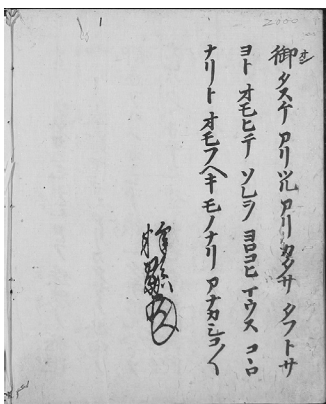 御オン タスケ アリツル アリカタサ タフトサ
ヨト オモヒテ ソレヲ ヨロコヒ マウス コヽロ
ナリト オモフヘキ モノナリ アナカシコ〱